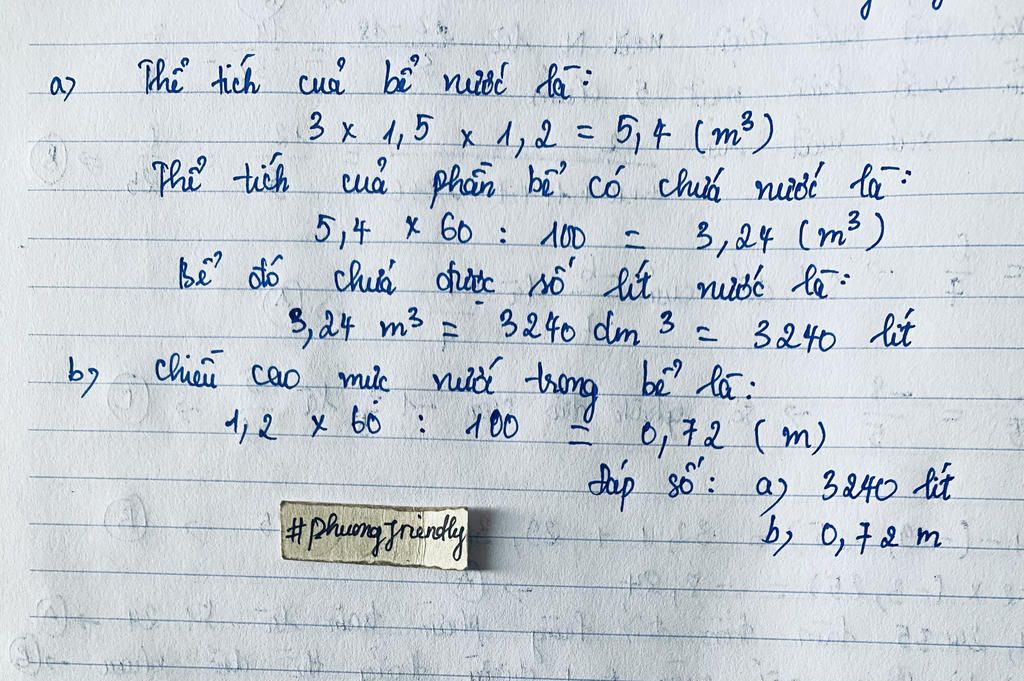 a) Thể tích của bể nước là:
3 x 1,5 x 1,2 = 5,4 (m³)
Thể tích của phần bể có chứa nước là:
5,4 x 60 : 100 = 3,24 (m³)
Bể đó chứa được số lít nước là:
3,24 m³ = 3240 dm³ = 3240 lít
b, Chiều cao mực nước trong bể là:
1,2 x 60 : 100 = 0,72 (m)
Đáp số: a) 3240 lít
b, 0,72 m
#phuongfriendly